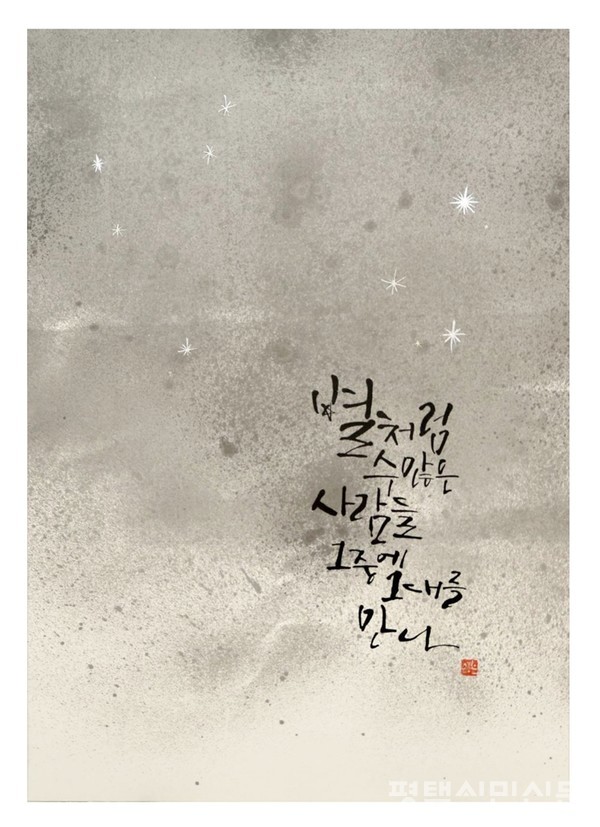 별처럼
수많은
사람들
그중에
그대를
만나
평택시민신문